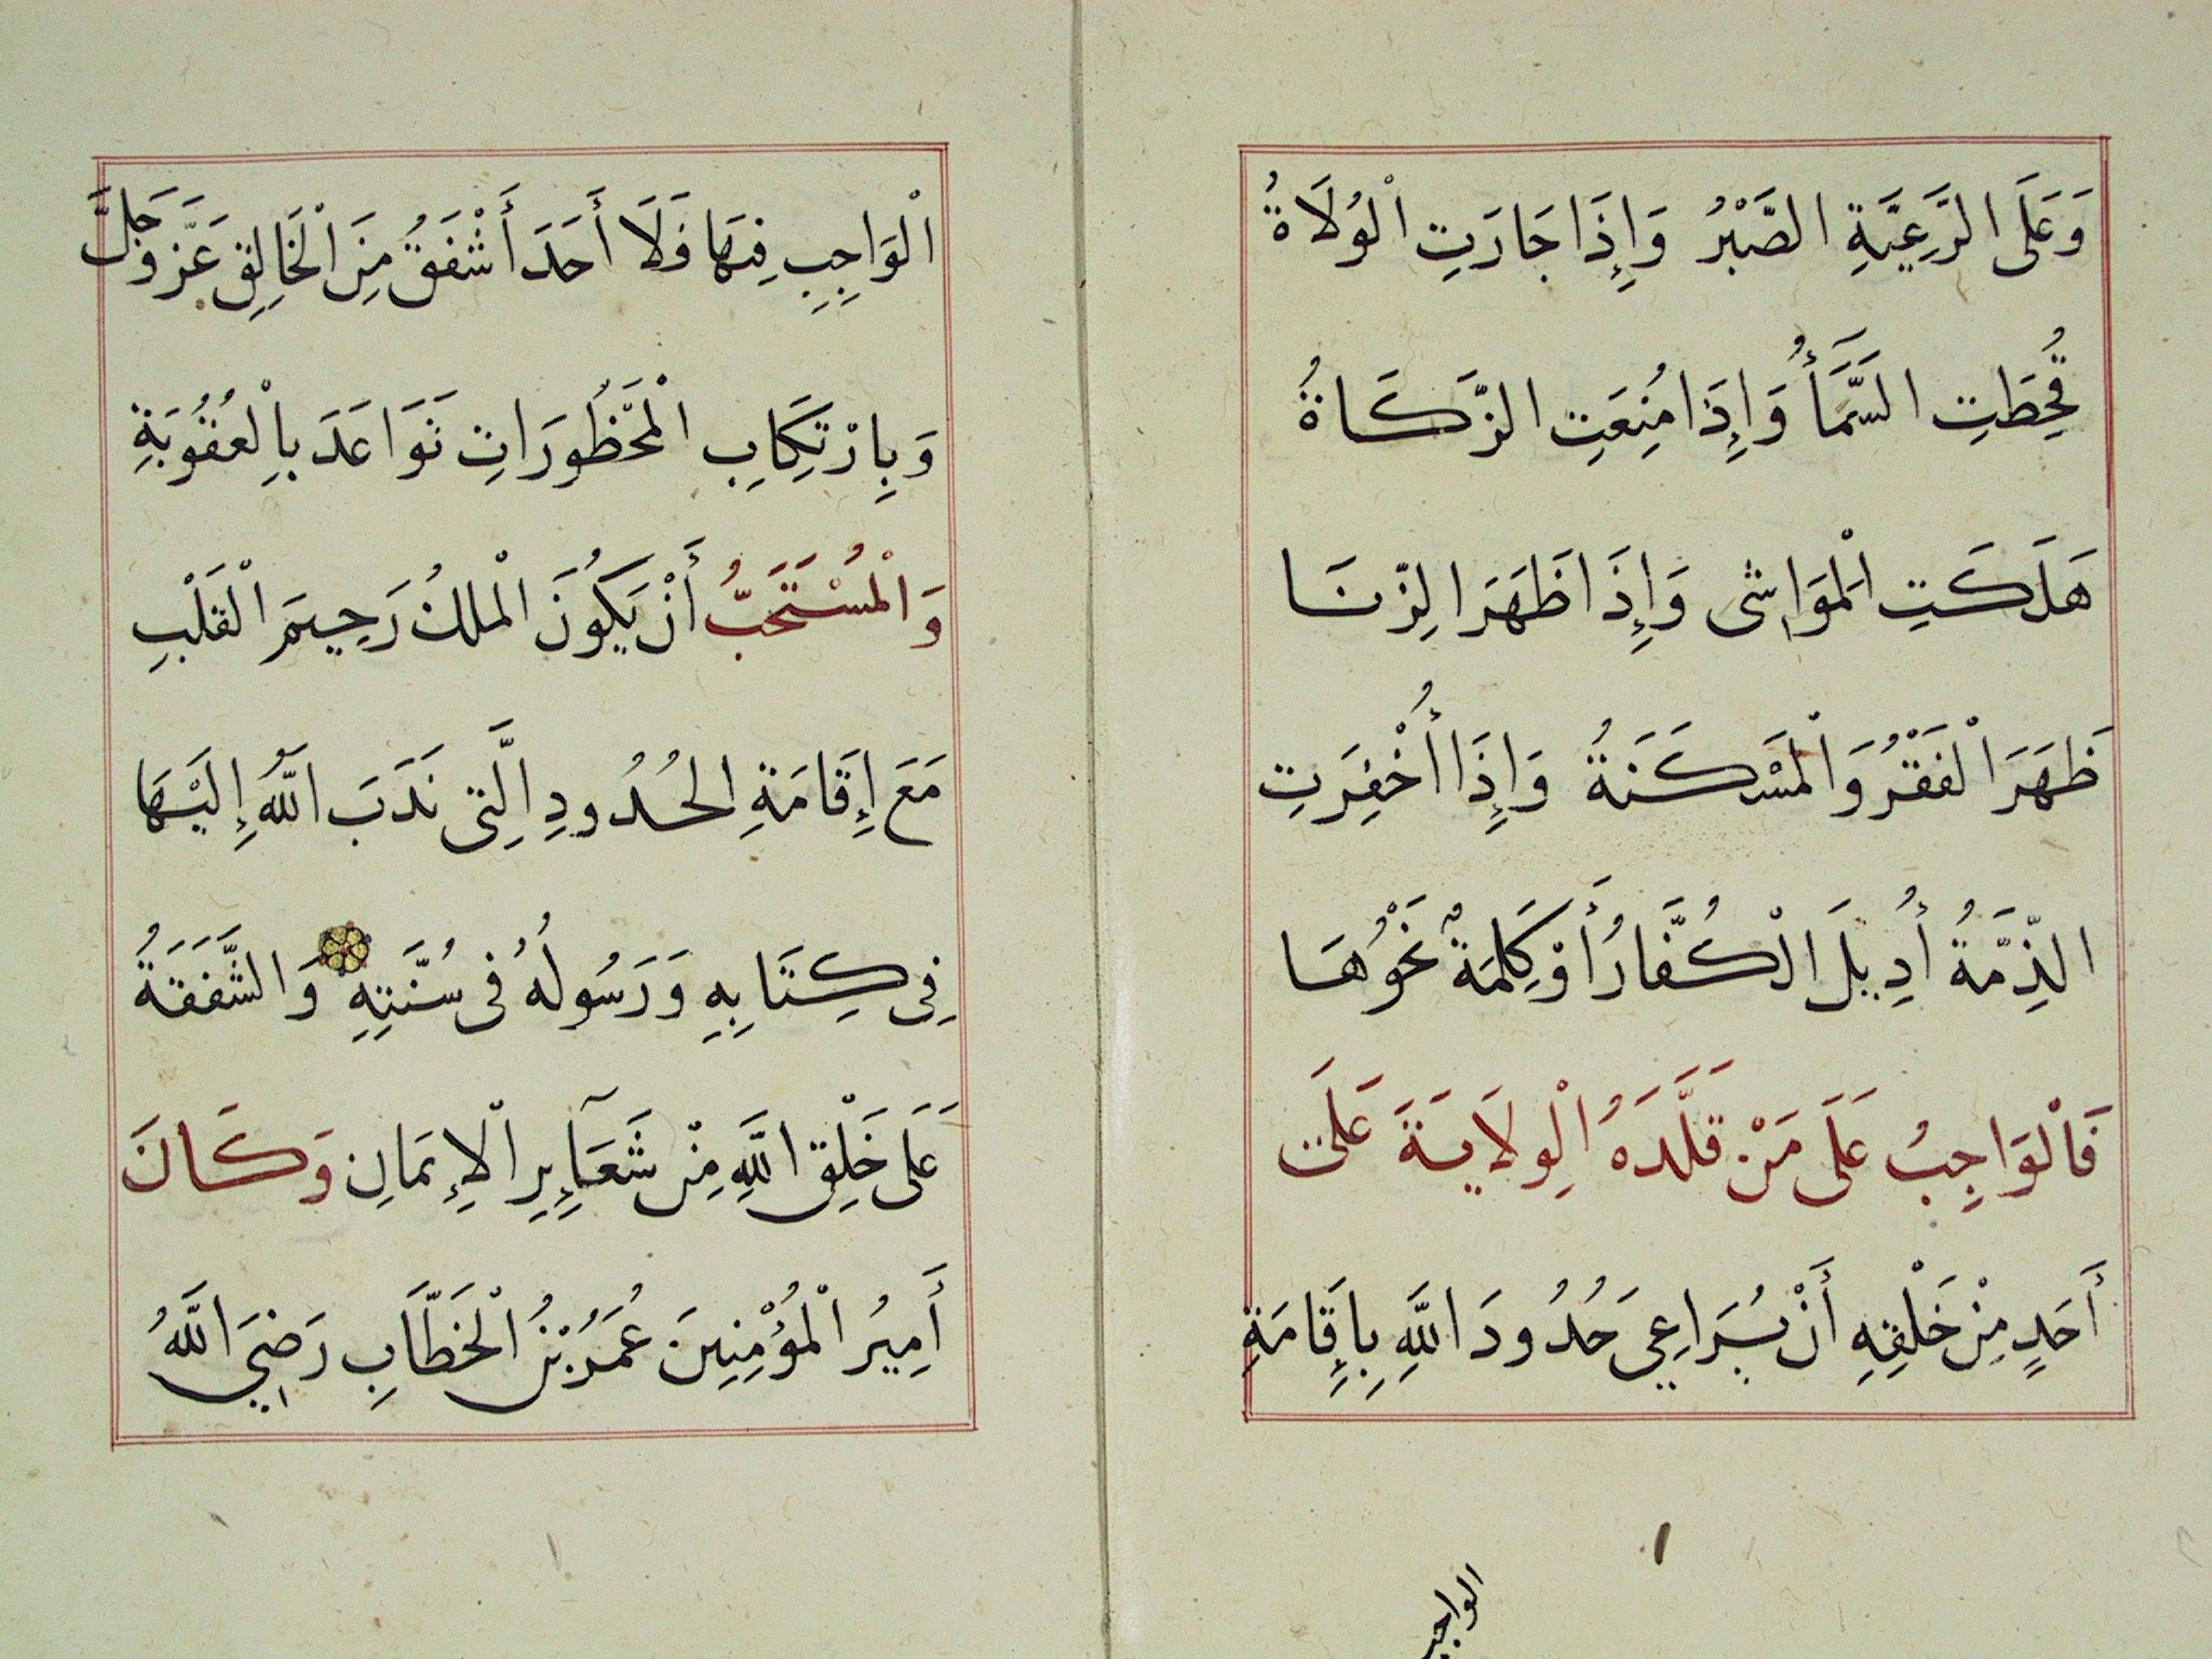 وَعَلَى الرَّعِيَّةِ الصَّبْرُ وَإِذَا جَارَتِ الْوُلَاةُ
قُحِطَتِ السَّمَأُ وَإِذَا مُنِعَتِ الزَّكَاةُ
هَلَكَتِ الْمَوَاشِى وَإِذَا ظَهَرَ الزِّنَا
ظَهَرَ الْفَقْرُ وَالْمَسْكَنَةُ وَإِذَا أُخْفِرَتِ
الذِّمَّةُ أُدِيلَ الْكُفَّارُ أَوْ كَلِمَةٌ نَحْوُهَا
فَالْوَاجِبُ عَلَى مَنْ قَلَّدَهُ الْوِلَايَةَ عَلَى
أَحَدٍ مِنْ خَلْقِهِ أَنْ يُرَاعِيَ حُدُودَ اللَّهِ بِإِقَامَةِ
الواجب
الْوَاجِبِ فِيهَا فَلَا أَحَدَ أَشْفَقُ مِنَ الْخَالِقِ عَزَّ وَجَلَّ
وَبِارْتِكَابِ الْمَحْظُورَاتِ تَوَاعَدَ بِالْعُقُوبَةِ
وَالْمُسْتَحَبُّ أَنْ يَكُونَ الْملكُ رَحِيمَ الْقَلْبِ
مَعَ إِقَامَةِ الحُدُودِ الَّتِى نَدَبَ اللَّهُ إِلَيْهَا
فِى كِتَابِهِ وَرَسُولُهُ فِى سُنَّتِهِ وَالشَّفَقَةُ
عَلَى خَلْقِ اللَّهِ مِنْ شَعَآيِرِ الْإِيمَانِ وَكَانَ
أَمِيرُ الْمُؤْمِنِينَ عُمَرُ بْنُ الْخَطَّابِ رَضِيَ اللَّهُ